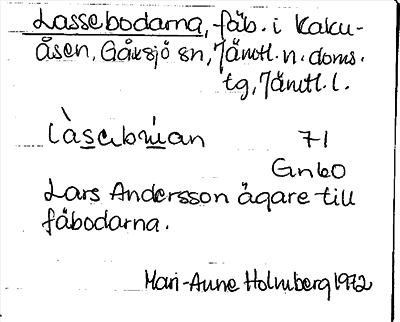 Lassebodarna, fäb. i Kalku-
åsen, Gåxsjö sn, Jämtl. n. doms.
tg, Jämtl. l.
71
Gn 60
Lars Andersson ägare till
fäbodarna.
Mari-Anne Holmberg 1972